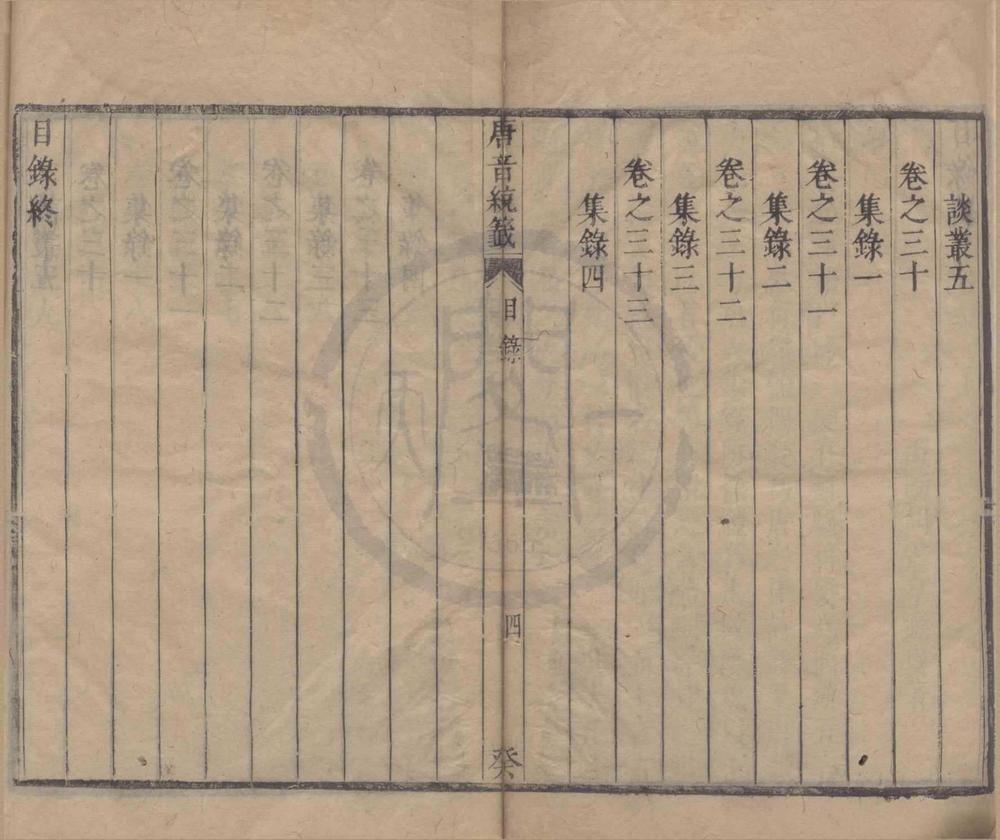 談叢五
卷之三十
集錄一
卷之三十一
集錄二
卷之三十二
集錄三
卷之三十三
集錄四
唐音統籤
目錄
四
癸
目錄終